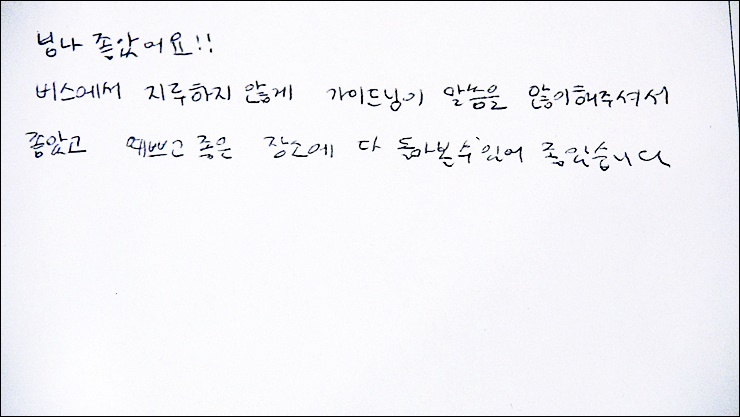 넘나 좋았어요!!
버스에서 지루하지 않게 가이드님이 말씀을 많이해주셔서
좋았고 예쁘고 좋은 장소에 다 돌아볼수 있어 좋았습니다